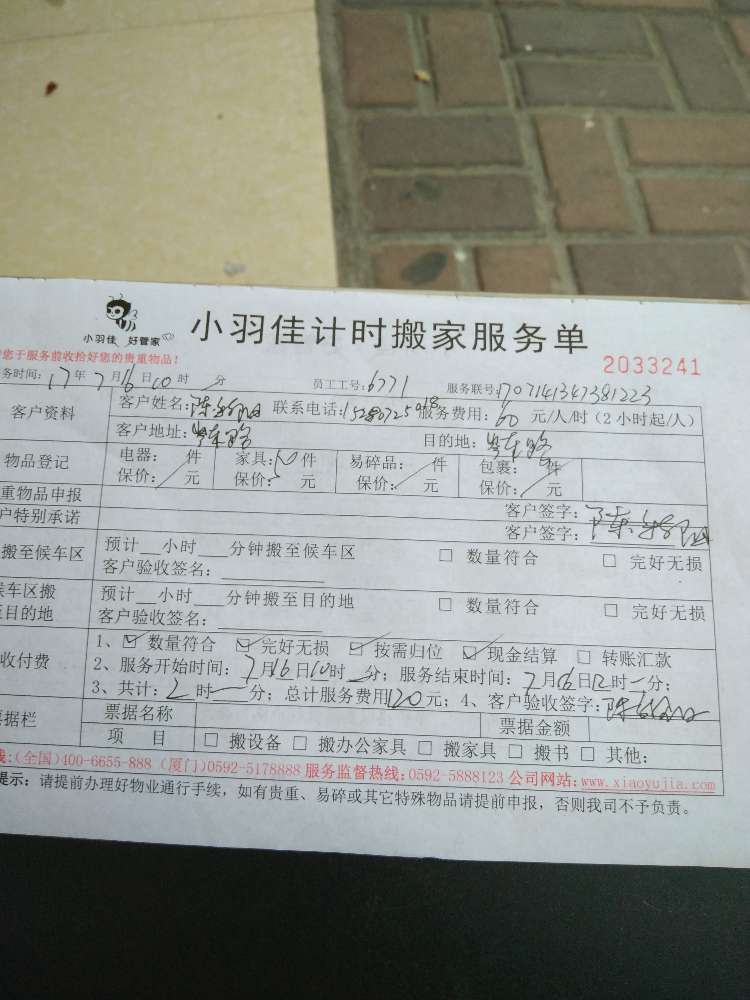 小羽佳 好管家
小羽佳计时搬家服务单
2033241
您于服务前收拾好您的贵重物品!
务时间: 17年7月16日10时 分 员工工号: 6771 服务联号: 1707141347381223
客户资料 客户姓名: 陈 联系电话: 服务费用: 60 元/人/时(2小时起/人)
客户地址: 路 目的地: 路
物品登记 电器: 件 家具: 件 易碎品: 件 包裹: 件
保价: 元 保价: 元 保价: 元 保价: 元
重物品申报 客户签字: 陈
户特别承诺 客户签字:
搬至候车区 预计__小时__分钟搬至候车区 □ 数量符合 □ 完好无损
客户验收签名:
车区搬 预计__小时__分钟搬至目的地 □ 数量符合 □ 完好无损
至目的地 客户验收签名:
收付费 1、☑ 数量符合 ☑ 完好无损 ☑ 按需归位 ☑ 现金结算 □ 转账汇款
2、服务开始时间: 7月16日10时 分; 服务结束时间: 7月16日12时 分;
3、共计: 2时 分; 总计服务费用120元; 4、客户验收签字: 陈
据栏 票据名称 票据金额
项 目 □ 搬设备 □ 搬办公家具 □ 搬家具 □ 搬书 □ 其他:
线:(全国)400-6655-888 (厦门)0592-5178888 服务监督热线:0592-5888123 公司网站:www.xiaoyujia.com
提示: 请提前办理好物业通行手续, 如有贵重、易碎或其它特殊物品请提前申报, 否则我司不予负责。